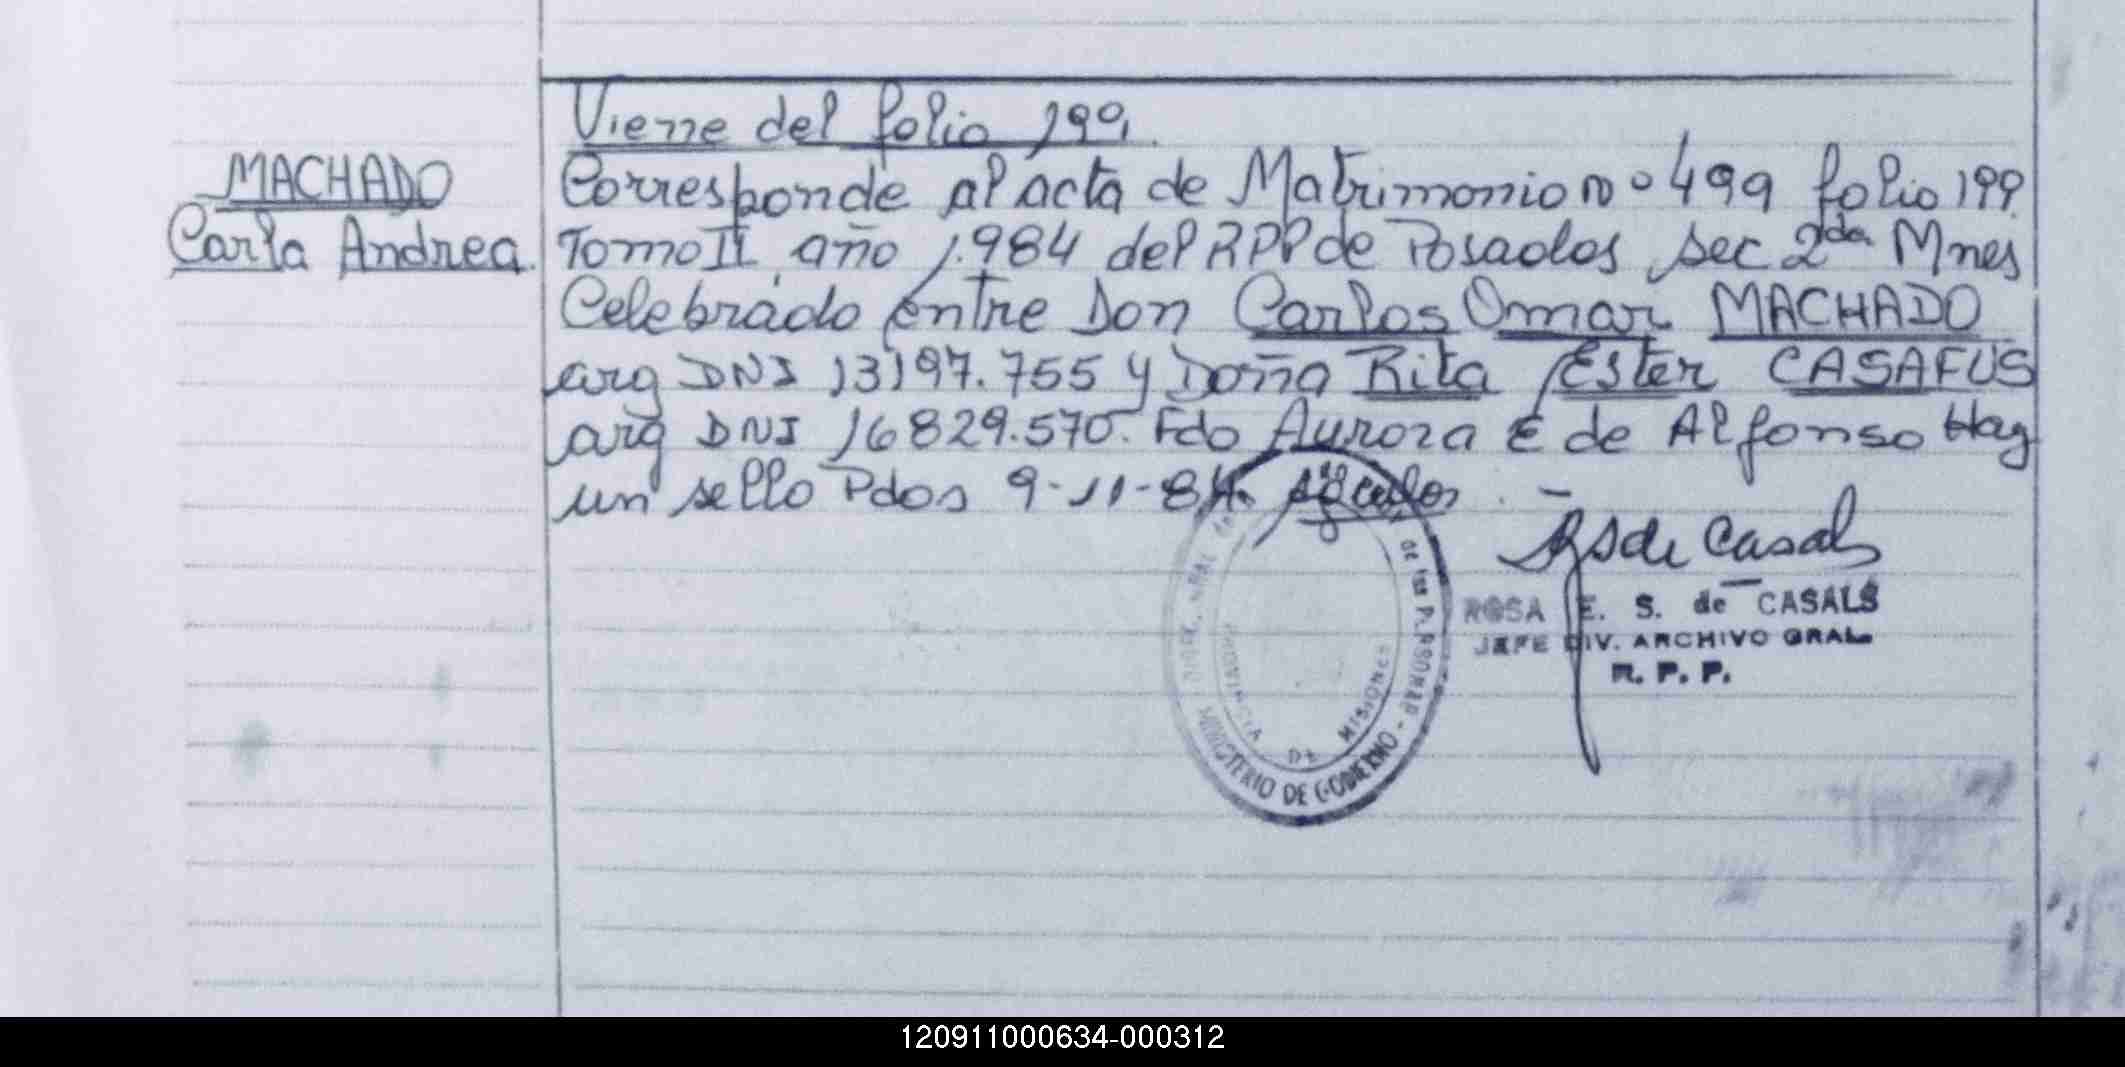 Viene del folio 199.
MACHADO
Carla Andrea.
Corresponde al acta de Matrimonio no 499 folio 199.
Tomo II año 1.984 del RPP de Posadas sec 2da Mnes
Celebrado entre Don Carlos Omar MACHADO
arg DNI 13197.755 y Doña Rita Ester CASAFUS
arg DNI 16829.570. Fdo Aurora E de Alfonso Hay
un sello Pdas 9-11-84.
RS de Casals
ROSA E. S. de CASALS
JEFE DIV. ARCHIVO GRAL.
R. P. P.
de las PERSONAS - MINISTERIO DE GOBIERNO
PROVINCIA DE MISIONES
120911000634-000312